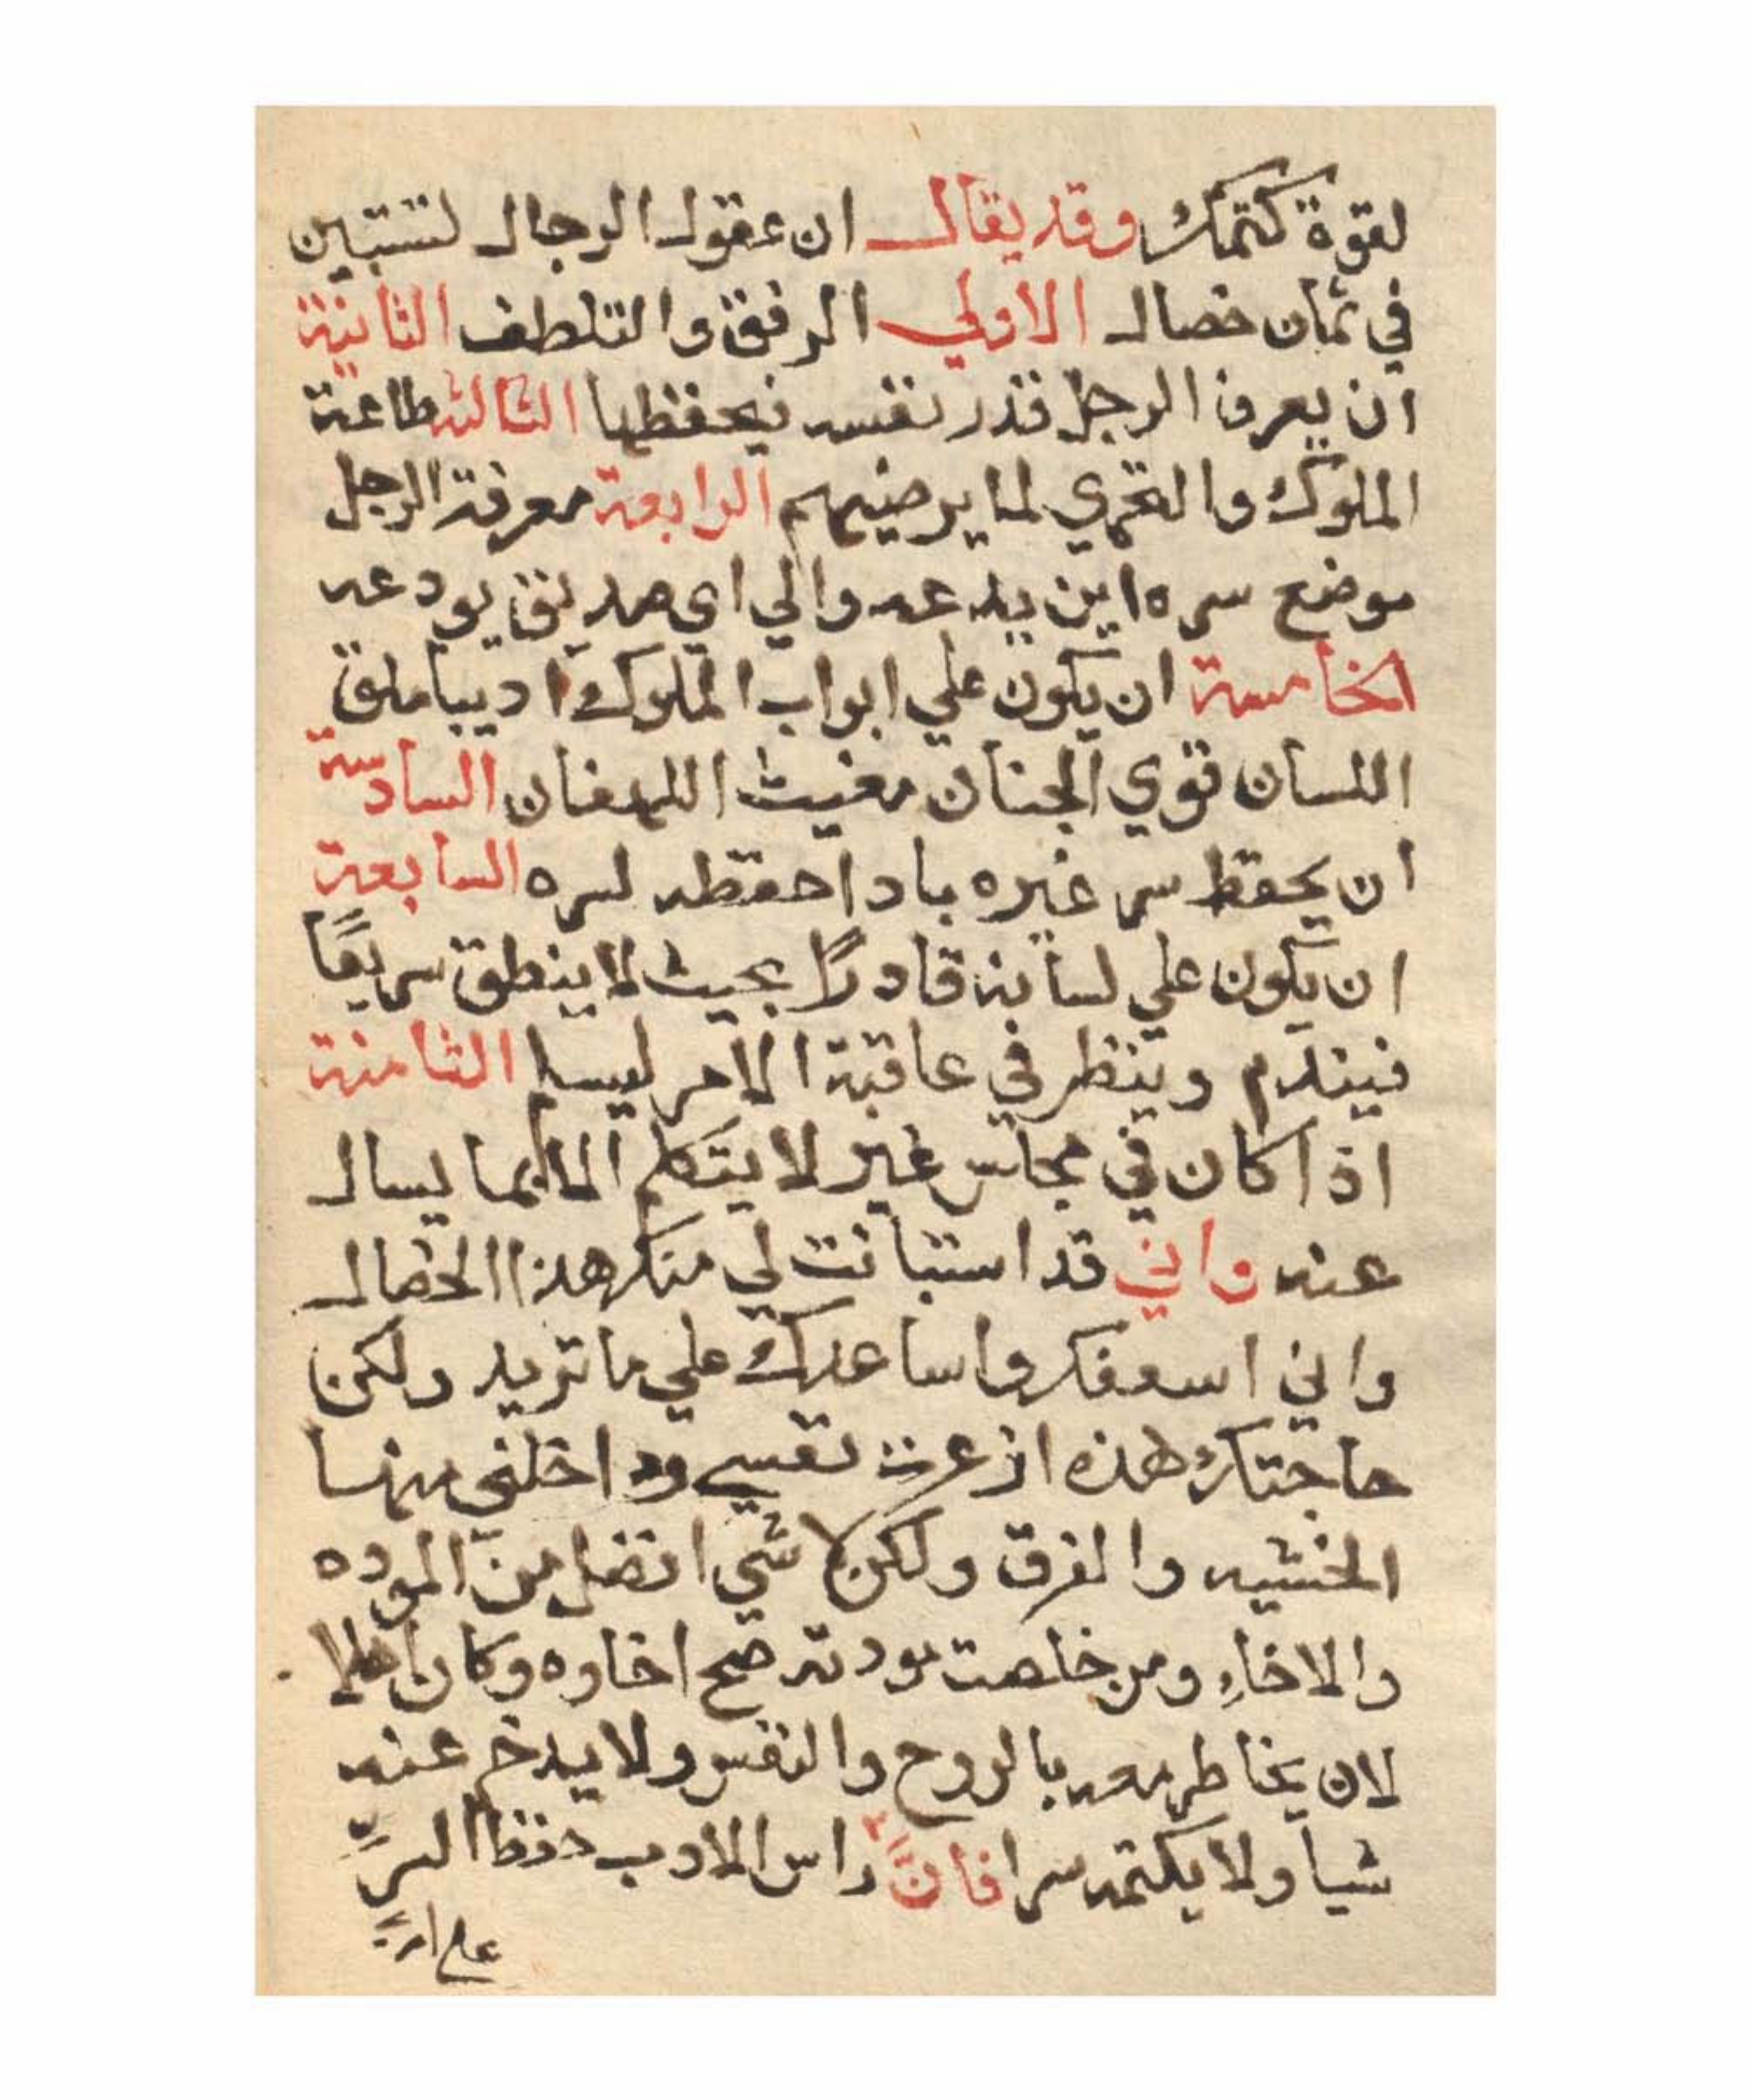 لقوة كتمك وقد يقال ان عقول الرجال لتستبين
في ثمان خصال الاولي الرفق والتلطف الثانية
ان يعرف الرجل قدر نفسه فيحفظها الثالثة طاعة
الملوك والتحري لما يرضيهم الرابعة معرفة الرجل
موضع سره اين يدعه والي اي صديق يودعه
الخامسة ان يكون علي ابواب الملوك اديبا ملق
اللسان قوي الجنان مغيث اللهفان السادسة
ان يحفظ سر غيره باد احفظه لسره السابعة
ان يكون علي لسانه قادرًا بحيث لا ينطق سريعًا
فيندم وينظر في عاقبة الامر ليسا الثامنة
اذا كان في مجلس غير لا يتكلم الا بما يسال
عنه واني قد استبانت لي منك هذا الخصال
واني اسعفك واساعدك علي ما تريد ولكن
حاجتك هذه ازعرت نفسي وداخلني منها
الخشيه والفرق ولكن لا شي افضل من الموده
والاخاءِ ومن خلصت مودته صح اخاوه وكان اهلا
لان يخاطر معه بالروح والنفس ولا يدخر عنه
شيا ولا يكتمه سرا فانَّ راس الادب حفظ السرِّ